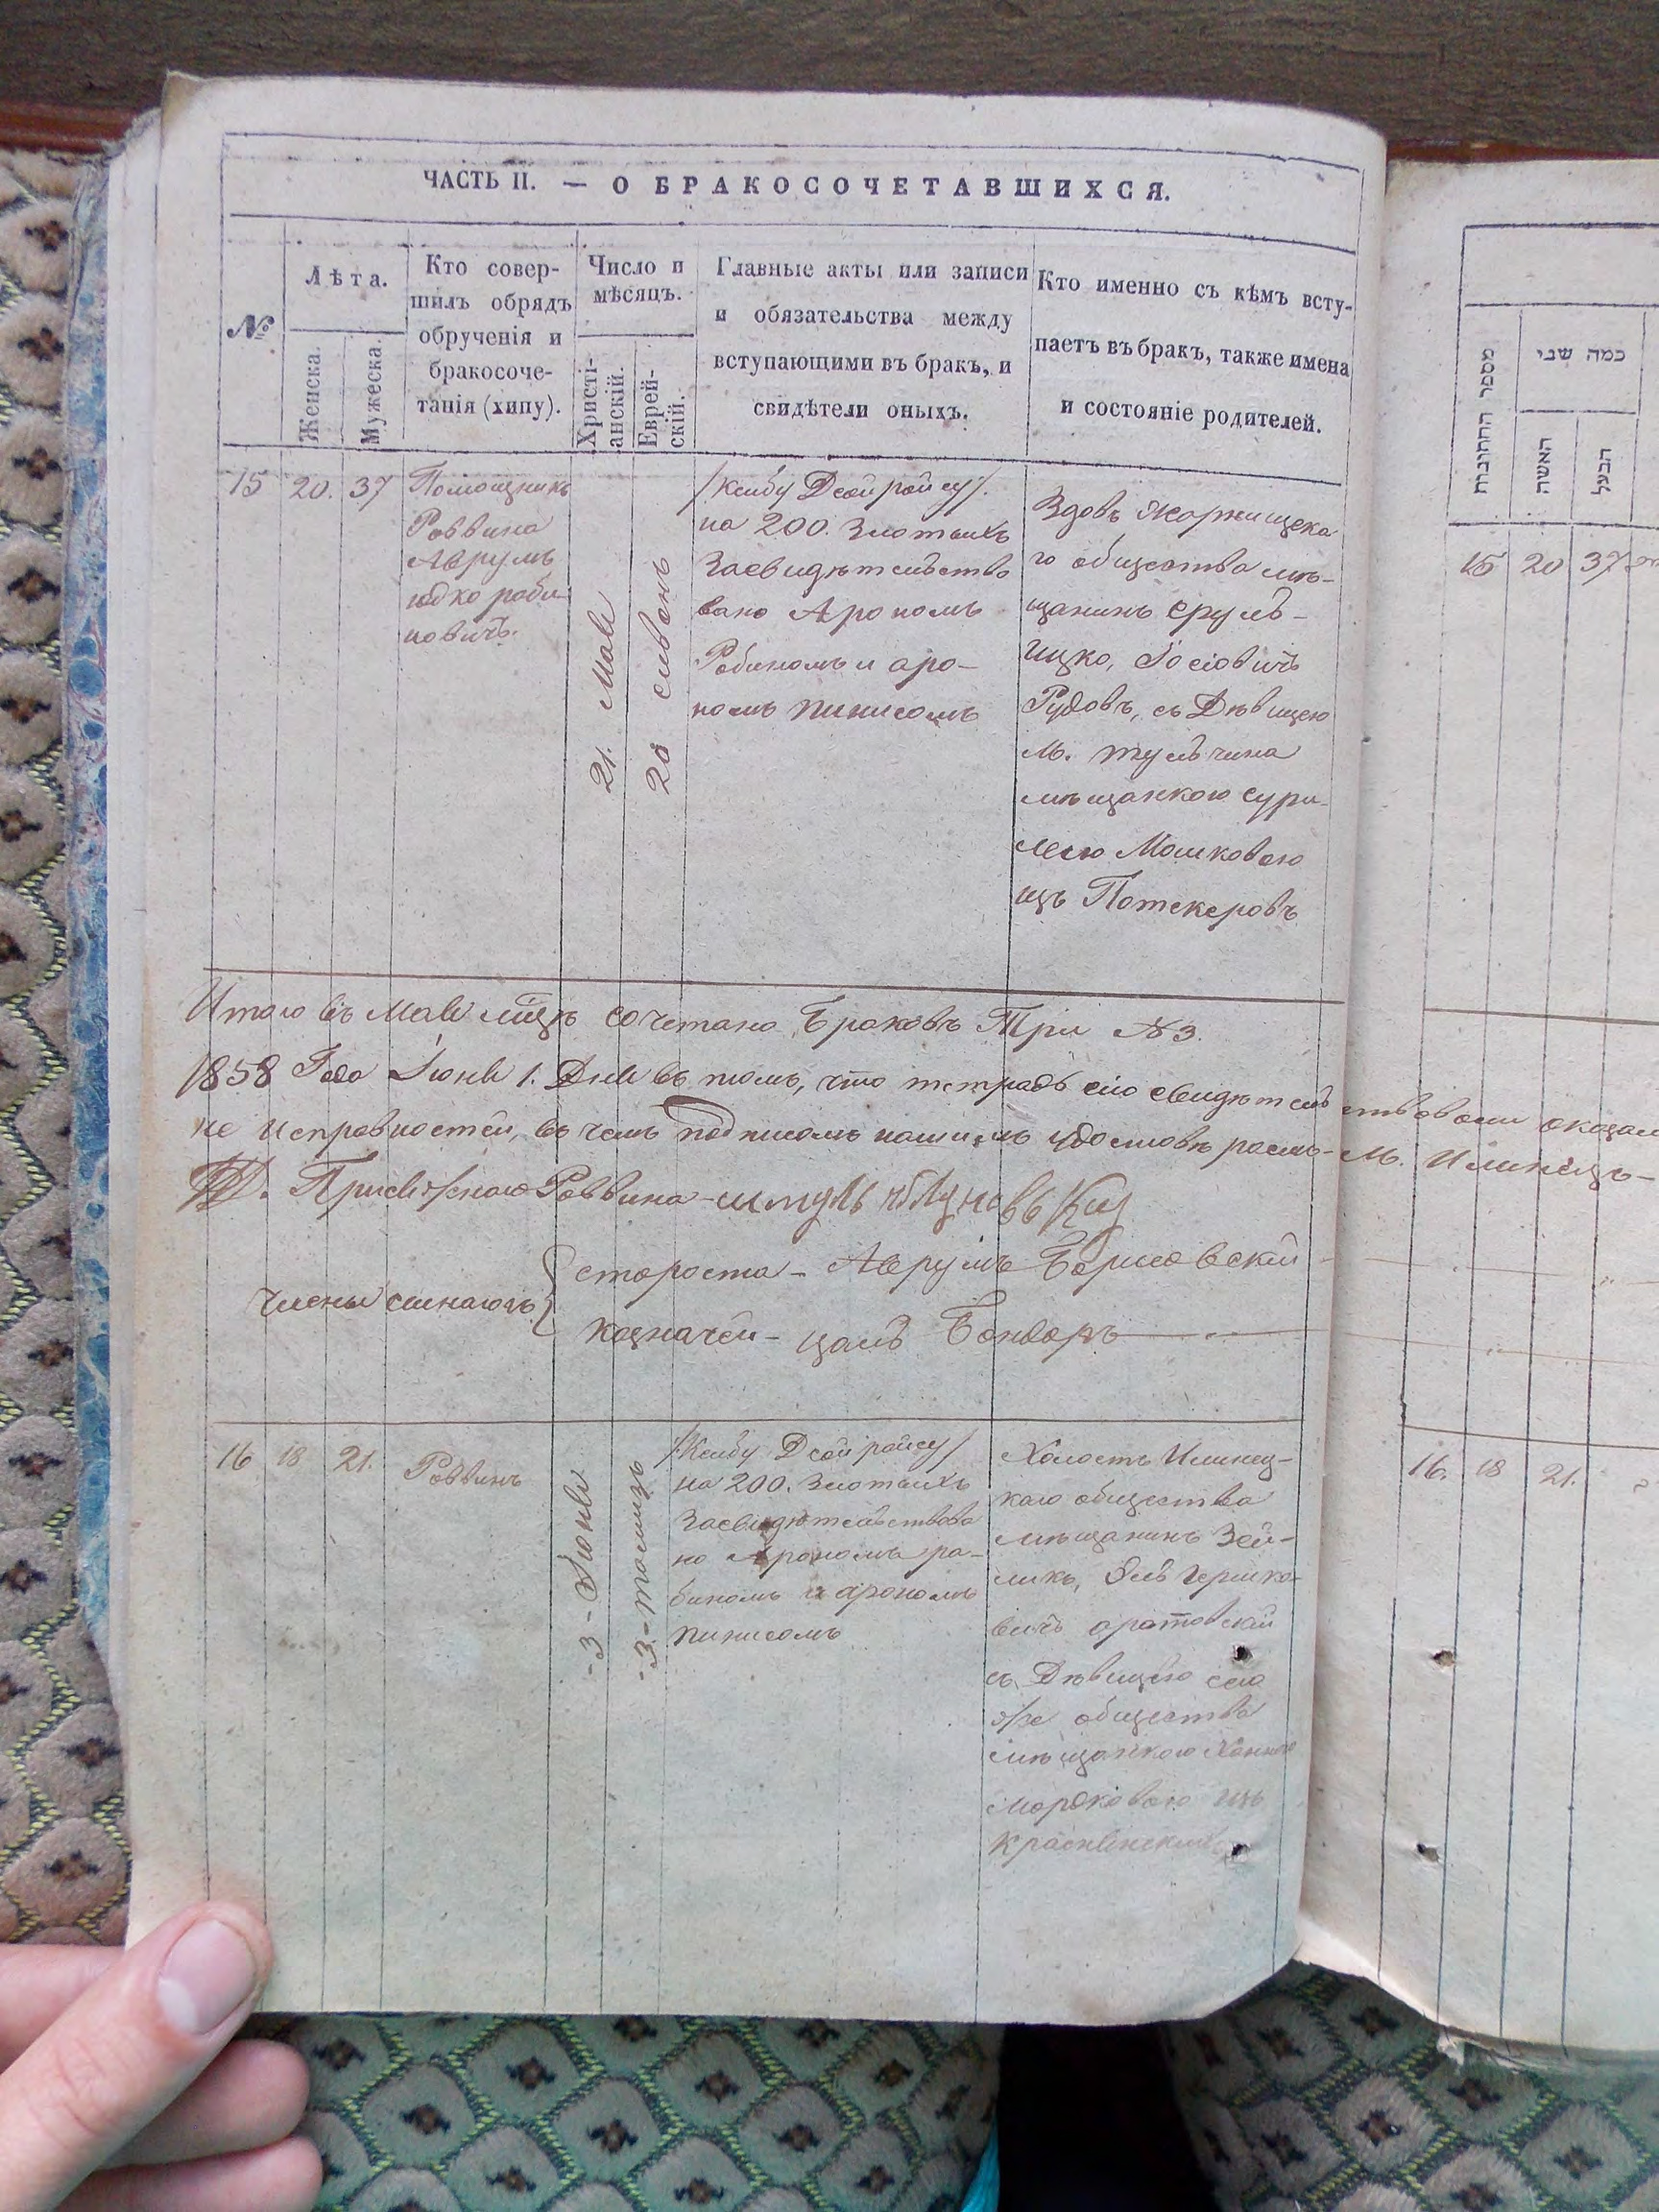 ЧАСТЬ II. — О БРАКОСОЧЕТАВШИХСЯ.
№
Лѣта.
Женска.
Мужеска.
Кто совер-
шилъ обрядъ
обрученія и
бракосоче-
танія (хипу).
Число и
мѣсяцъ.
Христі-
анскій.
Еврей-
скій.
Главные акты или записи
и обязательства между
вступающими въ бракъ, и
свидѣтели оныхъ.
Кто именно съ кѣмъ всту-
паетъ въ бракъ, также имена
и состояніе родителей.
15
20.
37
Помощникъ
Раввина
Аврумъ
юдко раби-
новичъ.
21. Мая
20 сивонъ
на 200. злотыхъ
Засвидѣтельство
вано Арономъ
Рабиномъ и аро-
номъ пинисомъ
Вдовъ
го общества мѣ-
щанинъ Сруль-
Ицко, Іосіовичъ
Рудовъ, съ Дѣвицею
м. тульчина
мѣщанкою сури-
леею Мошковою
изъ Потекеровъ
Итого въ Маѣ мцѣ сочетано Браковъ Три №3.
1858 Года Іюня 1. Дня въ томъ, что тетрадь сію свидѣтель
ствовали оказал
не исправностей, въ чемъ подписомъ нашимъ удостовѣряемъ- М. Илинецъ-
Присяжного Раввина
староста- Аврумъ Борисовскій
члены
казначей- цаль Бондаръ
16
18
21.
Раввинъ
-3- Іюня
-3- томизъ
на 200. злотыхъ
Засвидѣтельствова
но Арономъ ра-
биномъ и арономъ
пинисомъ
Холостъ Илинец-
каго общества
мѣщанинъ Зей-
ликъ, Эль Гершко-
вичъ аратовскій
съ Дѣвицею сего
же общества
мѣщанкою Ханною
Мордковою изъ
Краснянскихъ
מספר החתונות
כמה שני
האשה
הבעל
15
20
37
16.
18
21.